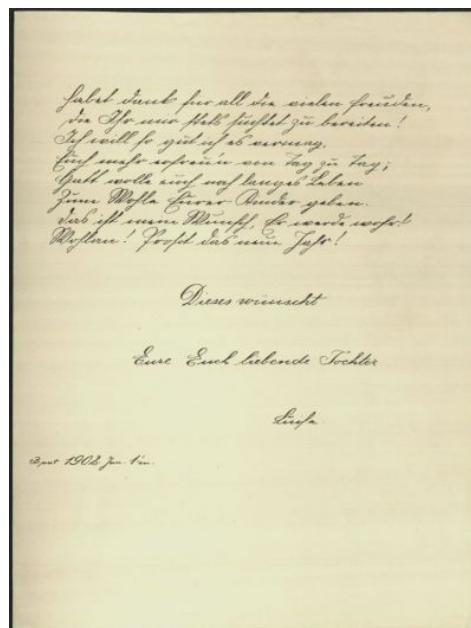 Habet Dank für all die vielen Freuden,
die Ihr mir stets suchtet zu bereiten!
Ich will so gut ich es vermag,
Euch mehr erfreu'n von Tag zu Tag;
Gott wolle euch noch langes Leben
Zum Wohle Eurer Kinder geben.
Das ist mein Wunsch, Er werde wahr!
Wohlan! Prosit das neue Jahr!
Dieses wünscht
Eure Euch liebende Tochter
Luise.
1902 Jan. 1